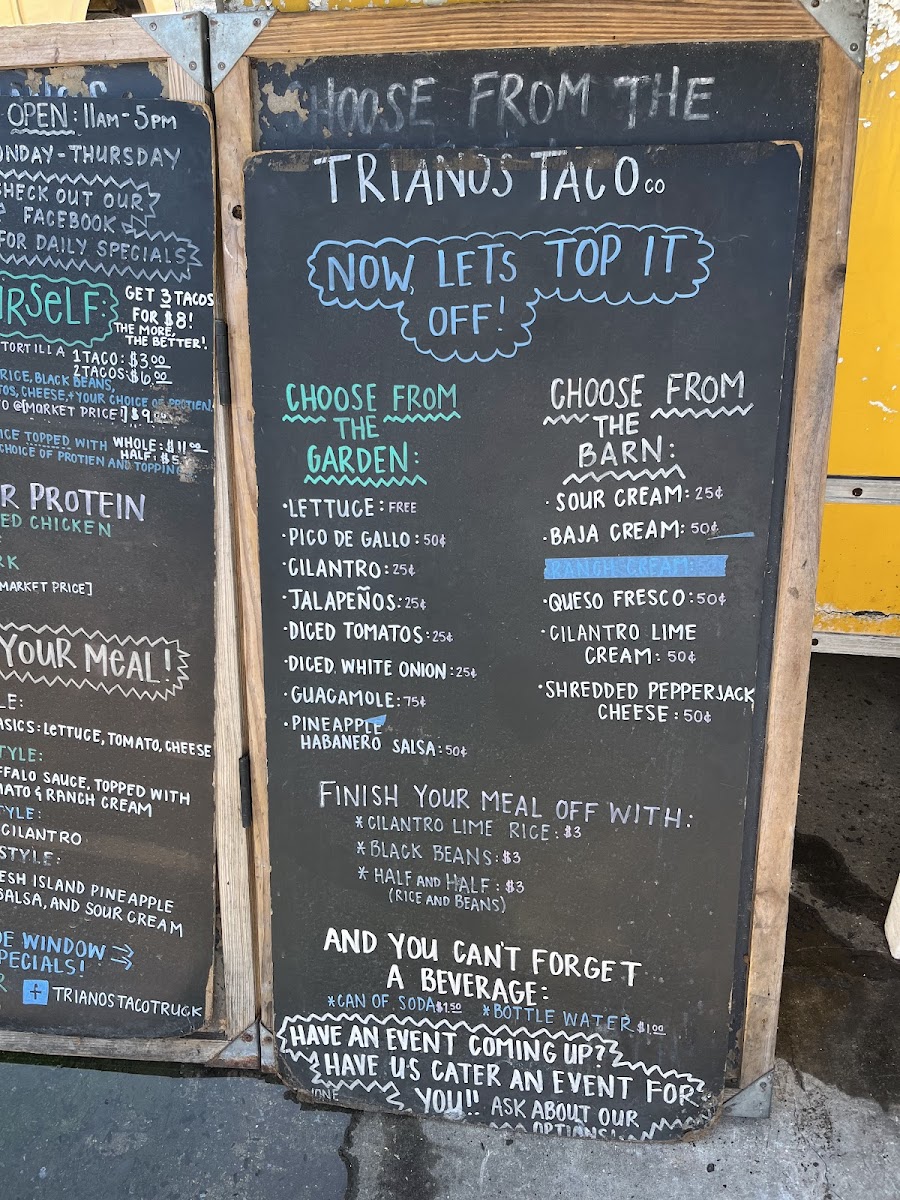 OPEN: 11AM-5PM
ONDAY-THURSDAY
CHECK OUT OUR
FACEBOOK
FOR DAILY SPECIALS
RSELF:
GET 3 TACOS
FOR $8!
THE MORE,
THE BETTER!
TORTILLA
1 TACO: $3.00
2 TACOS: $6.00
RICE, BLACK BEANS,
TOS, CHEESE, + YOUR CHOICE OF PROTIEN
O @[MARKET PRICE!] $9
ICE TOPPED WITH WHOLE: $11.00
HALF: $5
CHOICE OF PROTIEN AND TOPPING
R PROTEIN
ED CHICKEN
RK
MARKET PRICE]
YOUR MEAL!
LE:
ASICS: LETTUCE, TOMATO, CHEESE
TYLE:
FFALO SAUCE, TOPPED WITH
MATO & RANCH CREAM
TYLE:
CILANTRO
STYLE:
ESH ISLAND PINEAPPLE
SALSA, AND SOUR CREAM
DE WINDOW
PECIALS!
TRIANOSTACOTRUCK
CHOOSE FROM THE
TRIANOS TACO CO
NOW, LETS TOP IT
OFF!
CHOOSE FROM
THE
GARDEN:
·LETTUCE: FREE
·PICO DE GALLO: 50¢
·CILANTRO: 25¢
·JALAPEÑOS: 25¢
·DICED TOMATOS: 25¢
·DICED WHITE ONION: 25¢
·GUACAMOLE: 75¢
·PINEAPPLE
HABANERO SALSA: 50¢
CHOOSE FROM
THE
BARN:
·SOUR CREAM: 25¢
·BAJA CREAM: 50¢
RANCH CREAM: 50
·QUESO FRESCO: 50¢
·CILANTRO LIME
CREAM: 50¢
·SHREDDED PEPPERJACK
CHEESE: 50¢
FINISH YOUR MEAL OFF WITH:
*CILANTRO LIME RICE: $3
*BLACK BEANS: $3
*HALF AND HALF: $3
(RICE AND BEANS)
AND YOU CAN'T FORGET
A BEVERAGE:
*CAN OF SODA $1.50 *BOTTLE WATER $1.00
HAVE AN EVENT COMING UP??
HAVE US CATER AN EVENT FOR
YOU!! ASK ABOUT OUR
OPTIONS!